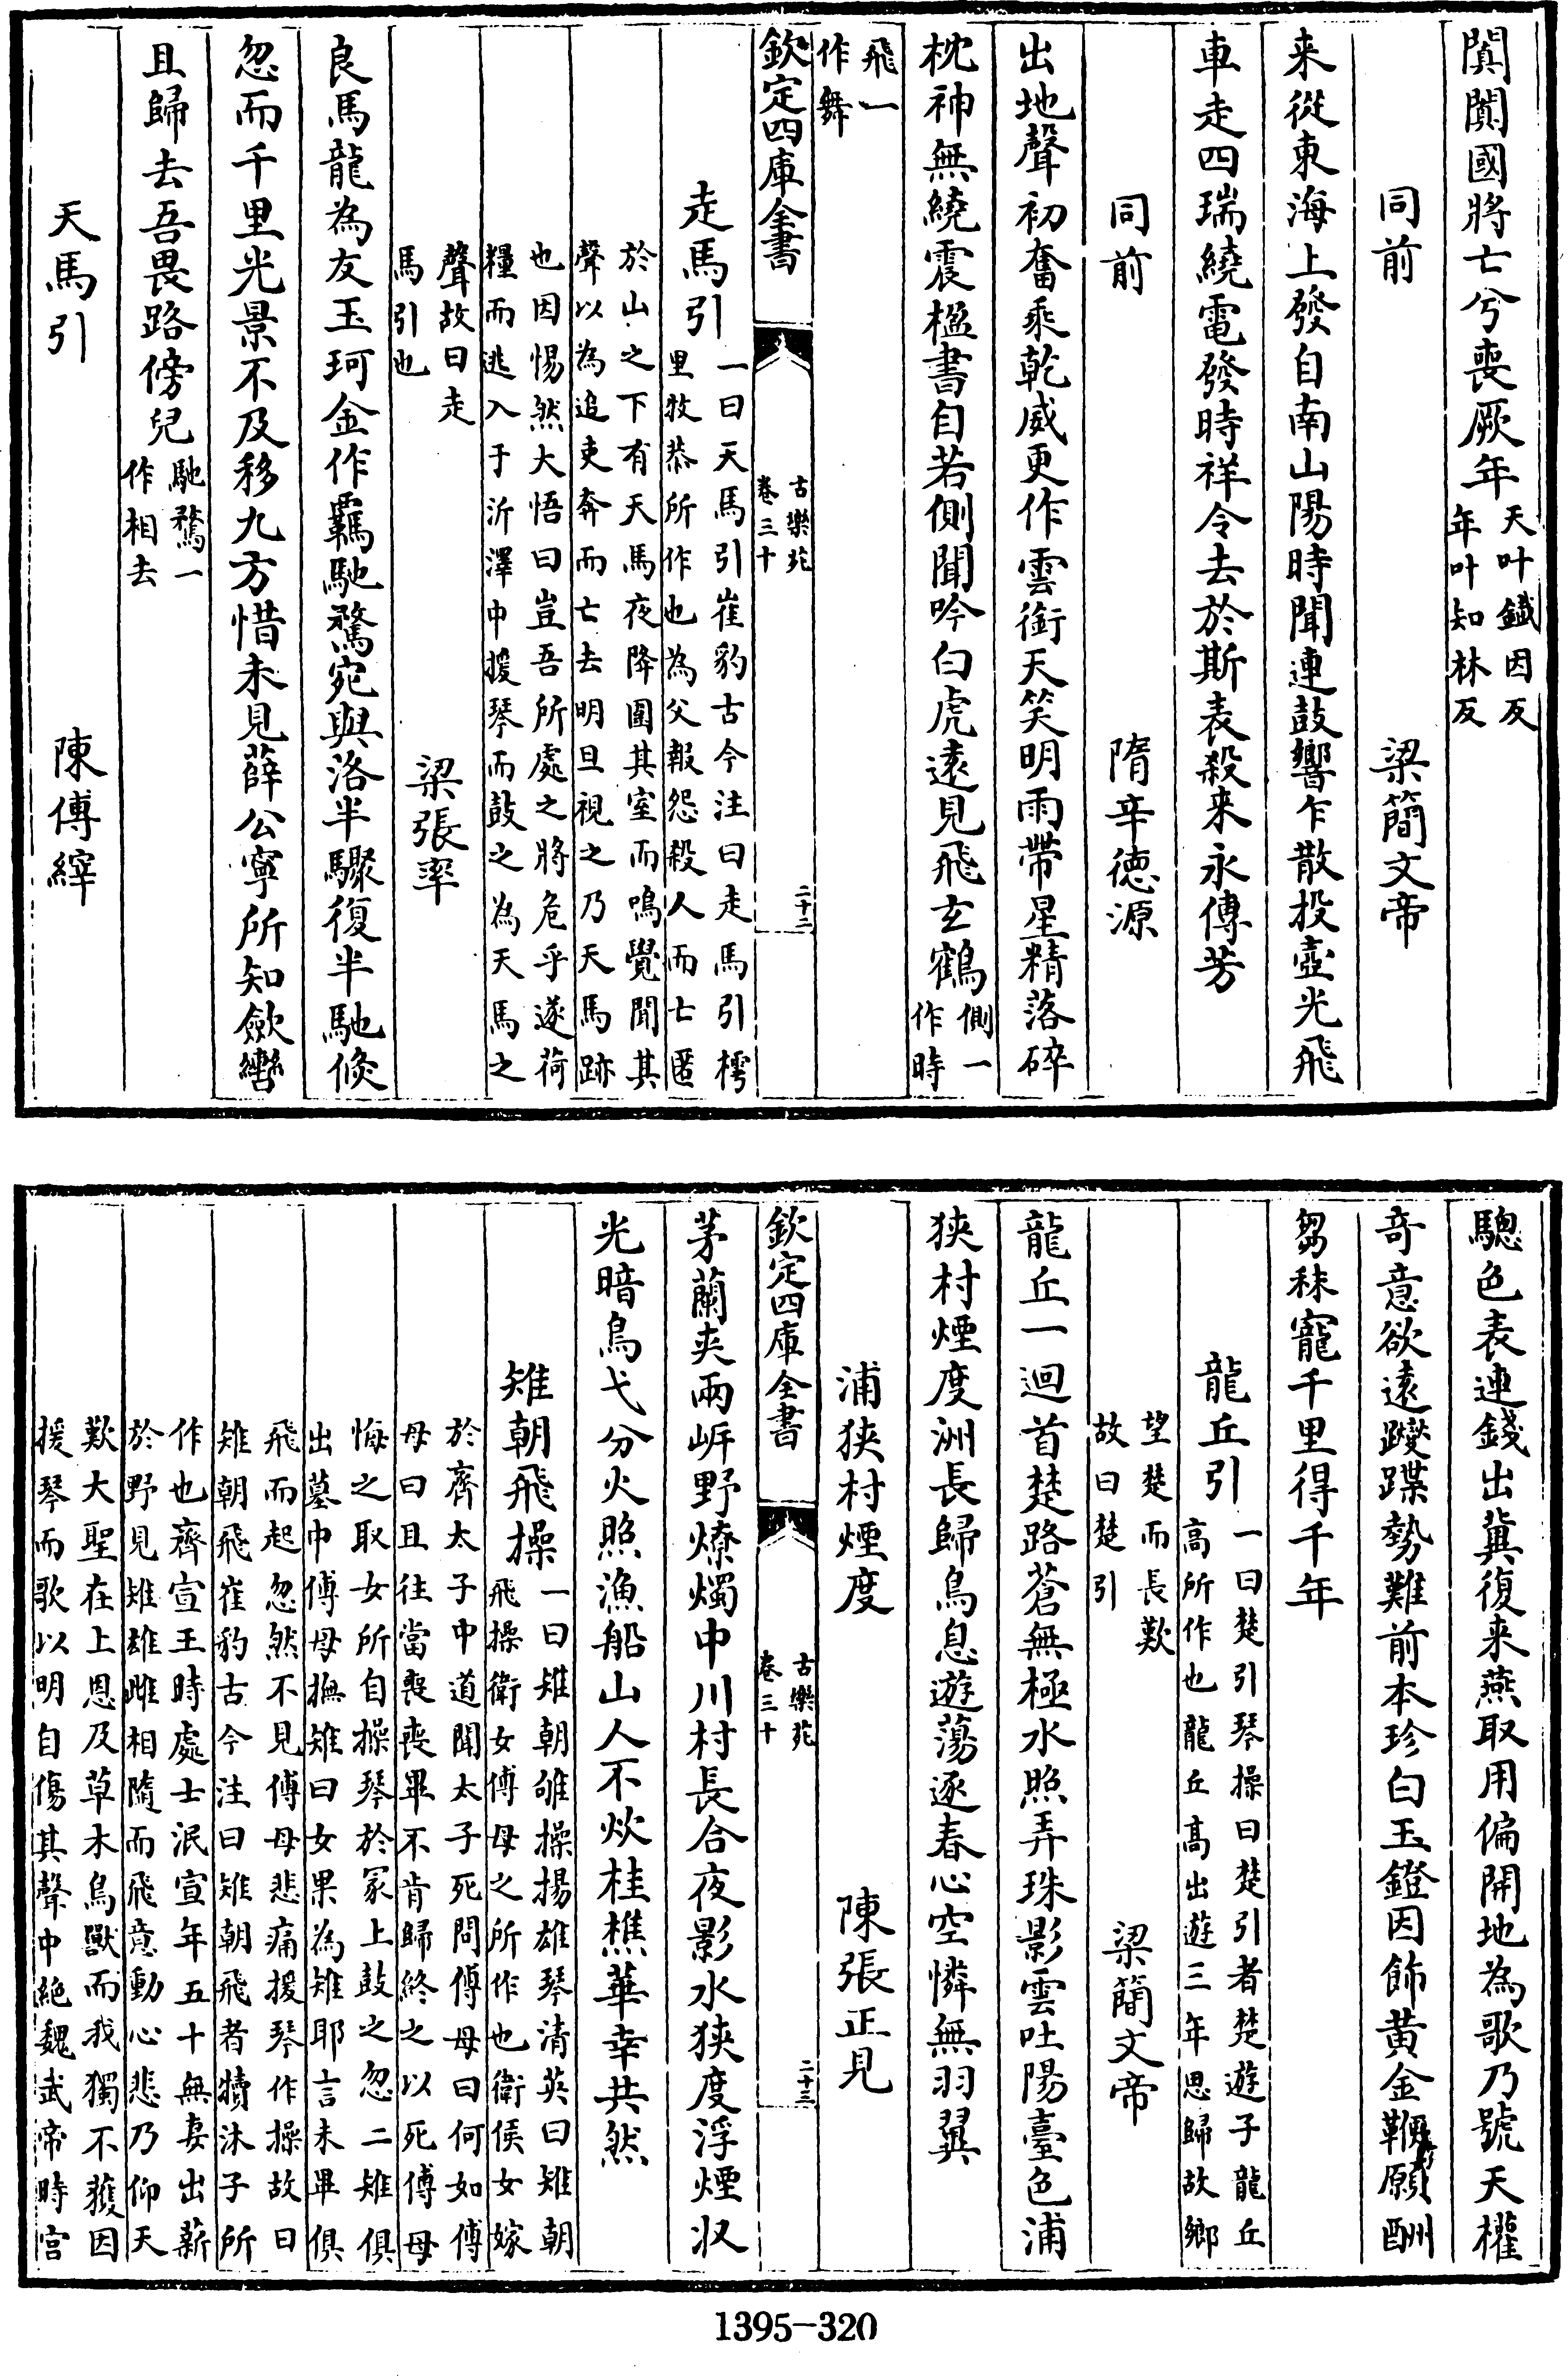 闐闐國將亡兮喪厥年天叶鐵因反年叶知林反
同前　梁簡文帝
来從東海上發自南山陽時聞連鼓響乍散投壺光飛
車走四瑞繞電發時祥令去於斯表殺来永傳芳
同前　隋辛徳源
出地聲初奮乘乾威更作雲銜天笑明雨帶星精落碎
枕神無繞震楹書自若側聞吟白虎遠見飛玄鶴側一作時
飛一作舞
欽定四庫全書　古樂苑卷三十　二十二
走馬引一曰天馬引崔豹古今注曰走馬引樗里牧恭所作也為父報怨殺人而亡匿
於山之下有天馬夜降圍其室而鳴覺聞其聲以為追吏奔而亡去明旦視之乃天馬跡
也因惕然大悟曰豈吾所處之將危乎遂荷糧而逃入于沂澤中援琴而鼓之為天馬之
聲故曰走馬引也　梁張率
良馬龍為友玉珂金作羈馳騖宛與洛半驟復半馳倐
忽而千里光景不及移九方惜未見薛公寧所知歛轡
且歸去吾畏路傍兒馳騖一作相去
天馬引　陳傅縡
驄色表連錢出冀復来燕取用偏開地為歌乃號天權
奇意欲遠躞蹀勢難前本珍白玉鐙因飾黄金鞭願酬
芻秣寵千里得千年
龍丘引一曰楚引琴操曰楚引者楚遊子龍丘高所作也龍丘高出遊三年思歸故鄉
望楚而長歎故曰楚引　梁簡文帝
龍丘一迴首楚路蒼無極水照弄珠影雲吐陽臺色浦
狹村煙度洲長歸鳥息遊蕩逐春心空憐無羽翼
浦狹村煙度　陳張正見
欽定四庫全書　古樂苑卷三十　二十三
茅蘭夾兩岍野燎燭中川村長合夜影水狹度浮煙收
光暗鳥弋分火照漁船山人不炊桂樵華幸共然
雉朝飛操一曰雉朝雊操揚雄琴清英曰雉朝飛操衛女傅母之所作也衛侯女嫁
於齊太子中道聞太子死問傅母曰何如傅母曰且往當喪喪畢不肯歸終之以死傅母
悔之取女所自操琴於冢上鼓之忽二雉俱出墓中傅母撫雉曰女果為雉耶言未畢俱
飛而起忽然不見傅母悲痛援琴作操故曰雉朝飛崔豹古今注曰雉朝飛者犢沐子所
作也齊宣王時處士泯宣年五十無妻出薪於野見雉雄雌相隨而飛意動心悲乃仰天
歎大聖在上恩及草木鳥獸而我獨不獲因援琴而歌以明自傷其聲中絶魏武帝時宫
1395-320